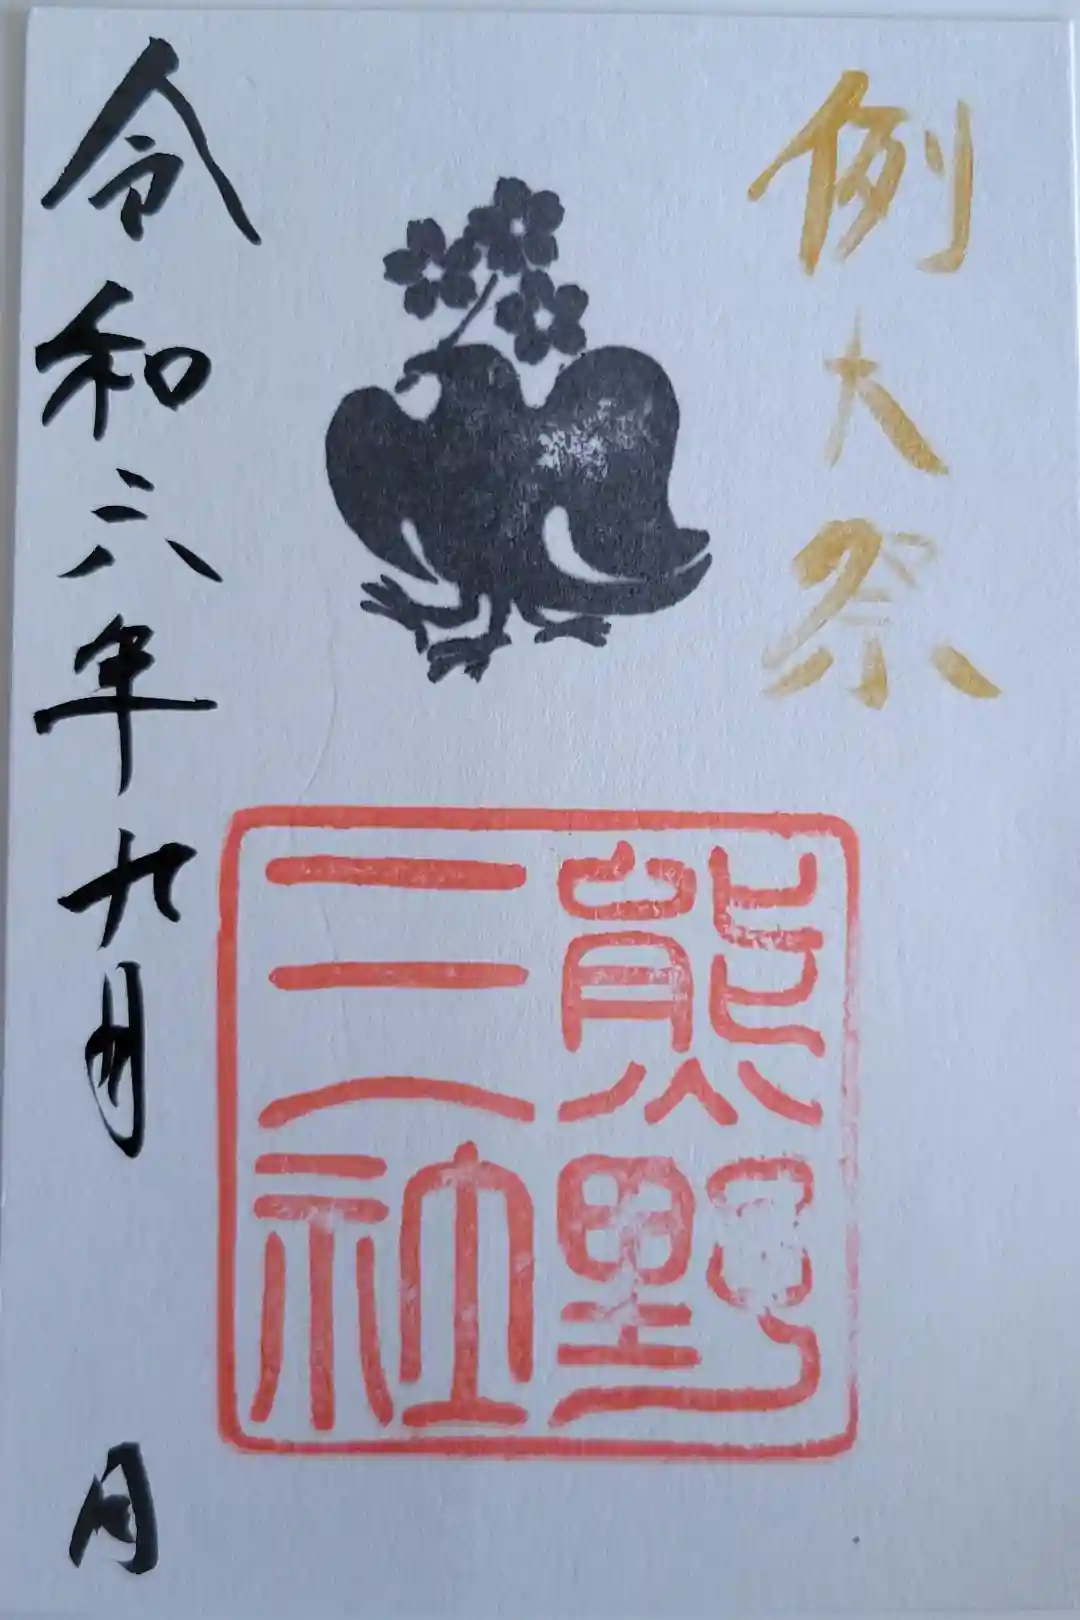 例大祭
熊野
三社
令和六年九月　日